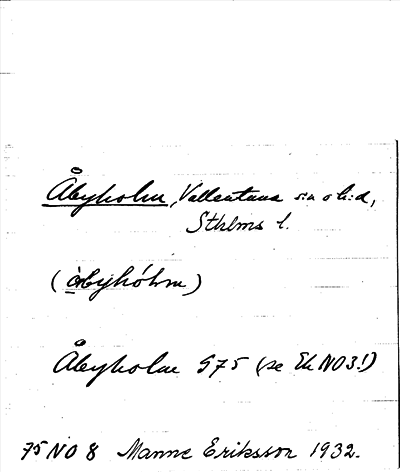 Åbyholm, Vallentuna sn o h:d,
Sthlms l.
(åbyhólm)
Åbyholm G75 (se Ek NO3!)
75 NO 8 Manne Eriksson 1932.